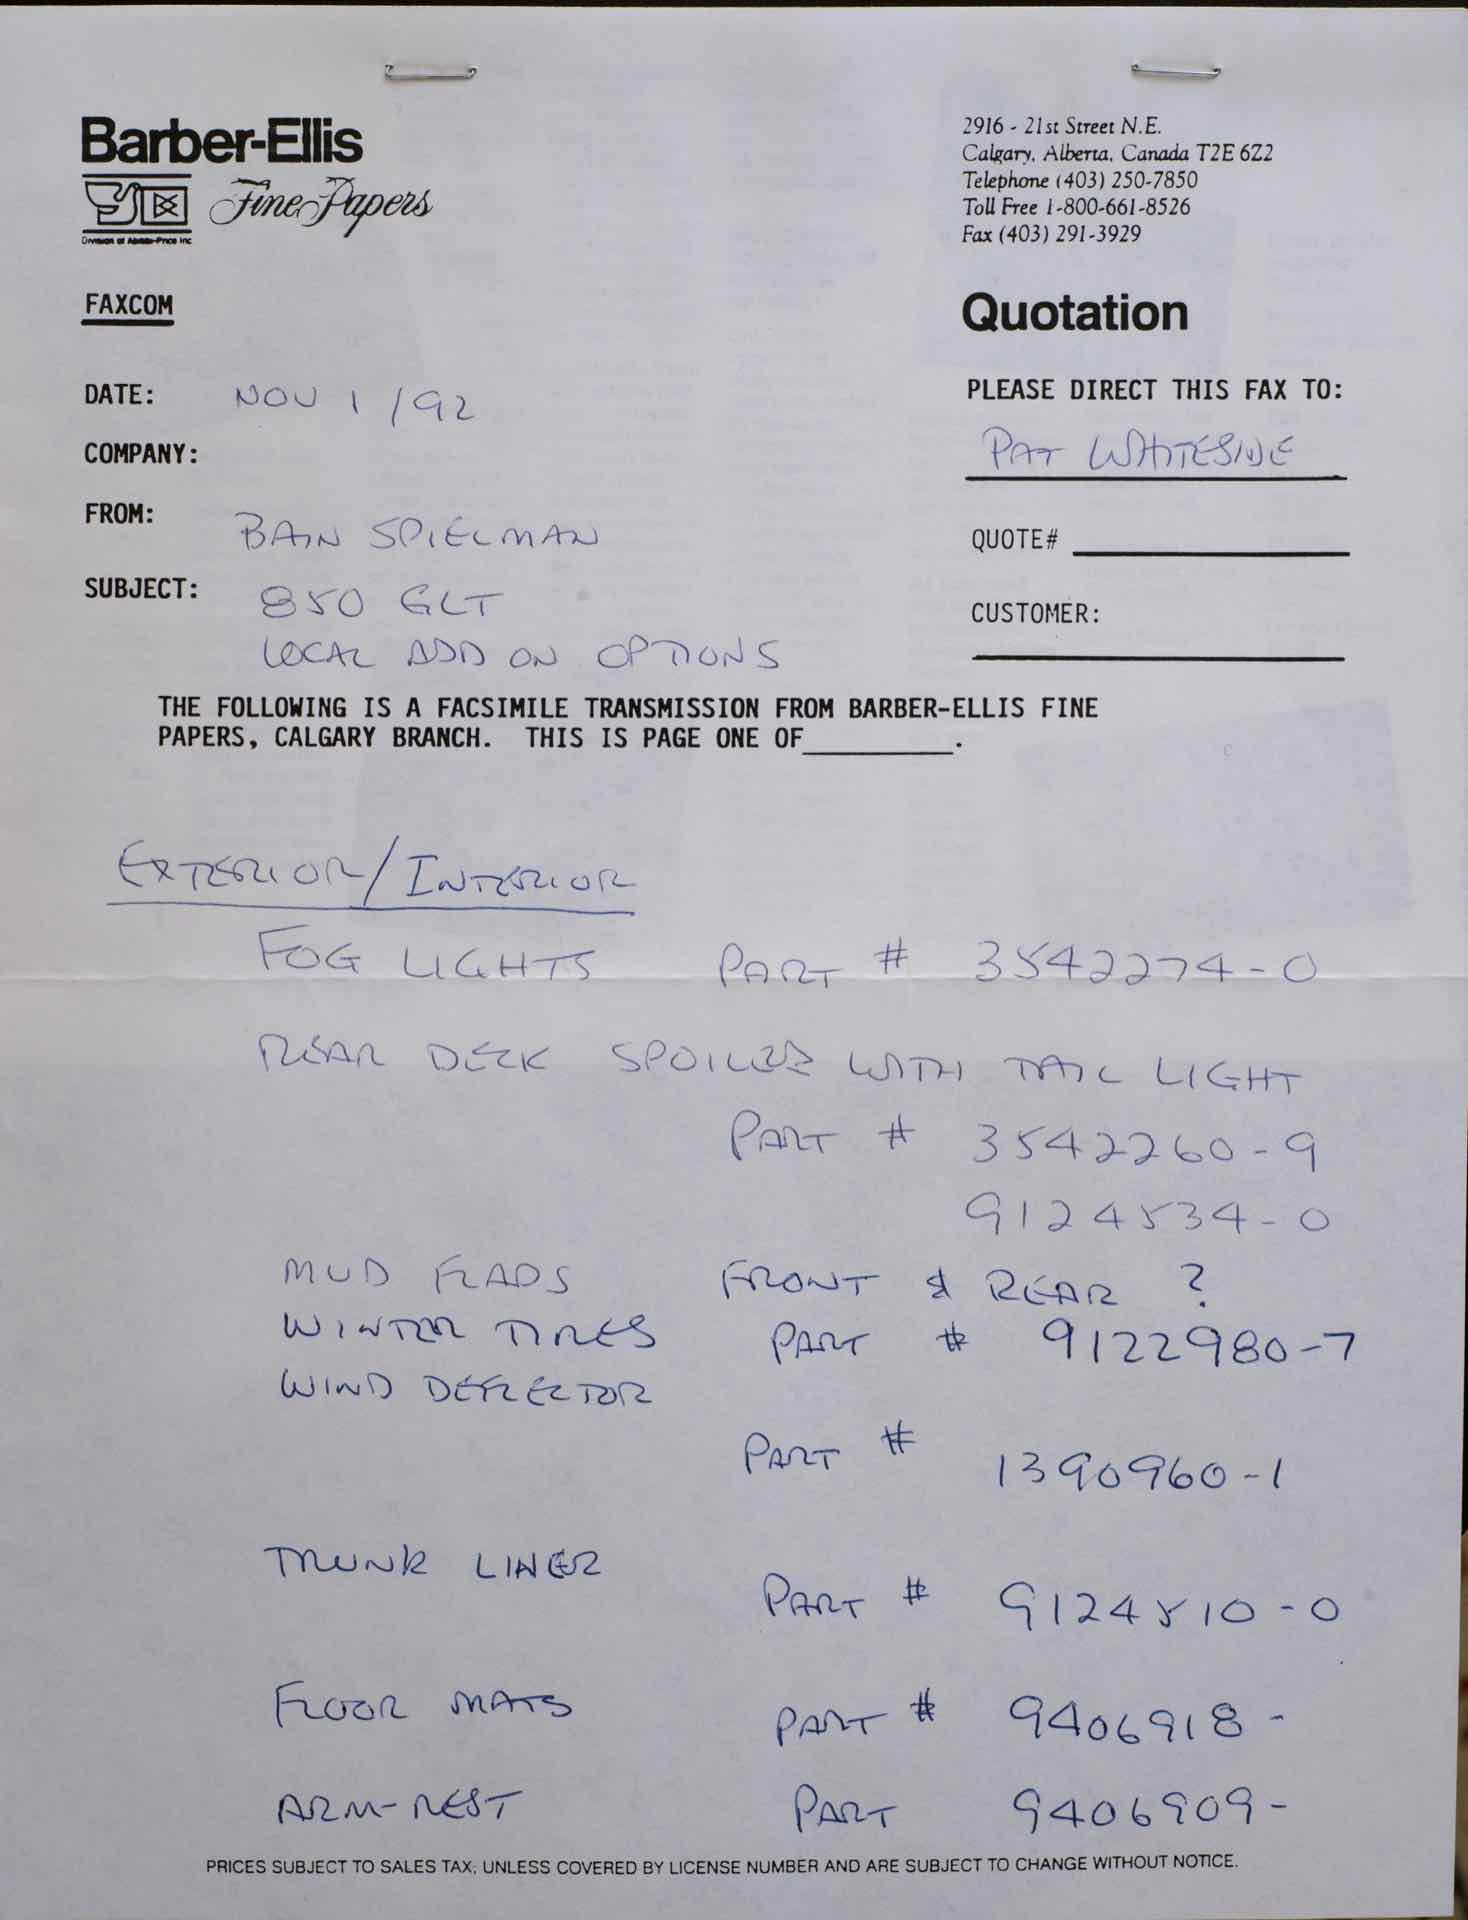 Barber-Ellis
Fine Papers
Division of Abitibi-Price Inc
2916 - 21st Street N.E.
Calgary, Alberta, Canada T2E 6Z2
Telephone (403) 250-7850
Toll Free 1-800-661-8526
Fax (403) 291-3929
FAXCOM
Quotation
DATE: NOV 1 / 92
PLEASE DIRECT THIS FAX TO:
PAT WHITESIDE
COMPANY:
FROM: BAIN SPIELMAN
QUOTE#
SUBJECT: 850 GLT
LOCAL ADD ON OPTIONS
CUSTOMER:
THE FOLLOWING IS A FACSIMILE TRANSMISSION FROM BARBER-ELLIS FINE
PAPERS, CALGARY BRANCH. THIS IS PAGE ONE OF_________.
EXTERIOR/INTERIOR
FOG LIGHTS PART # 3542274-0
REAR DECK SPOILER WITH TAIL LIGHT
PART # 3542260-9
9124534-0
MUD FLAPS FRONT & REAR ?
WINTER TIRES PART # 9122980-7
WIND DEFLECTOR
PART # 1390960-1
TRUNK LINER
PART # 9124510-0
FLOOR MATS PART # 9406918-
ARM-REST PART 9406909-
PRICES SUBJECT TO SALES TAX, UNLESS COVERED BY LICENSE NUMBER AND ARE SUBJECT TO CHANGE WITHOUT NOTICE.